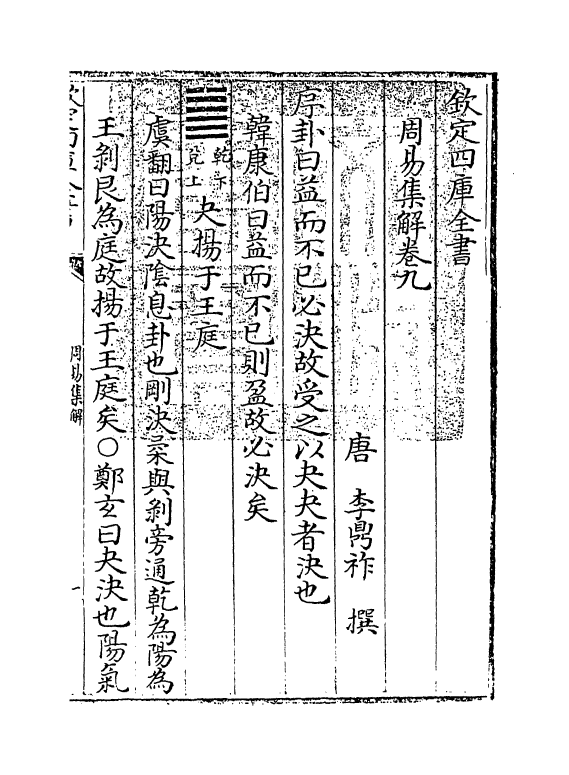 欽定四庫全書
周易集解卷九
唐 李鼎祚 撰
序卦曰益而不已必決故受之以夬夬者決也
韓康伯曰益而不已則盈故必決矣
乾下
兌上
夬揚于王庭
虞翻曰陽決陰息卦也剛決柔與剥旁通乾為陽為
王剥艮為庭故揚于王庭矣○鄭玄曰夬決也陽氣
周易集解
一